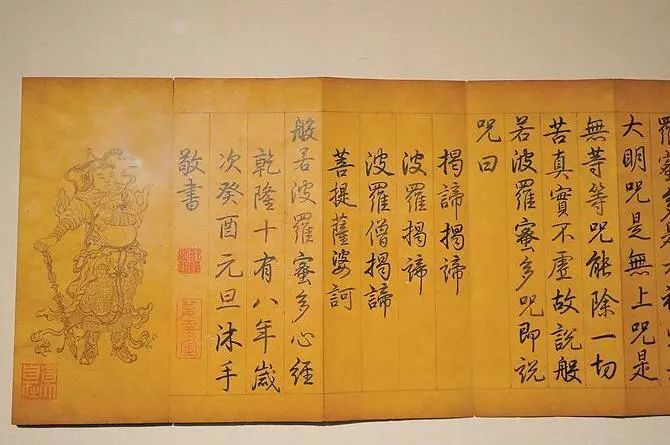 大明咒是無上咒是
無等等咒能除一切
苦真實不虛故說般
若波羅蜜多咒即說
咒曰
揭諦揭諦
波羅揭諦
波羅僧揭諦
菩提薩婆訶
般若波羅蜜多心經
乾隆十有八年歲
次癸酉元旦沐手
敬書